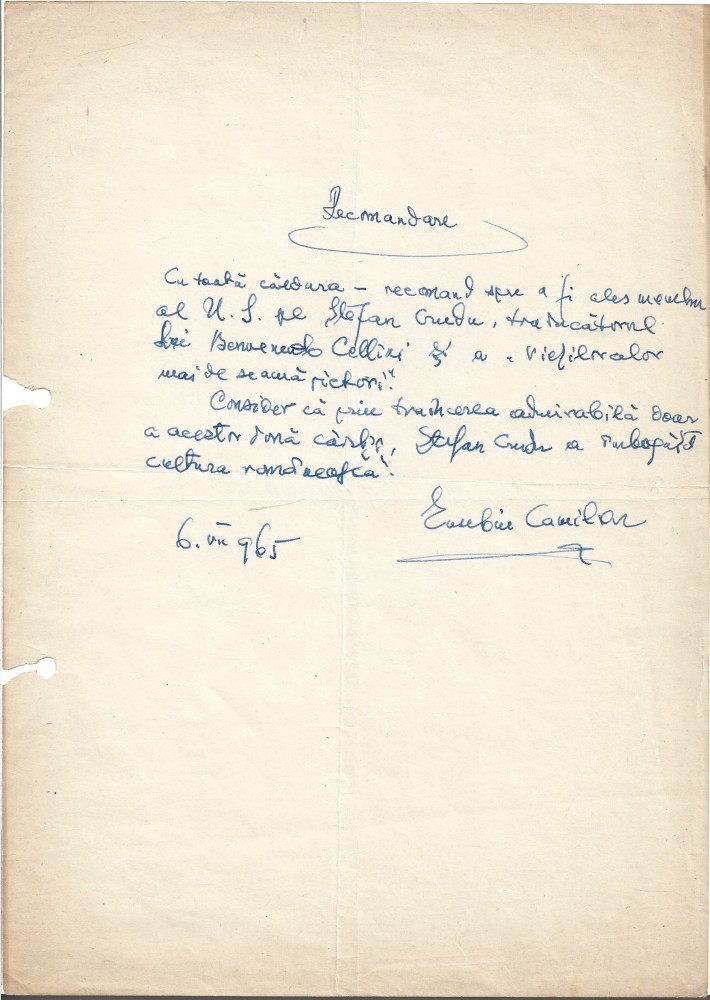 Recomandare
Cu toată căldura – recomand spre a fi ales membru
al U. S. pe Ștefan Crudu, traducătorul
lui Benvenuto Cellini și a „Vieților celor
mai de seamă pictori".
Consider că prin traducerea admirabilă doar
a acestor două cărți, Ștefan Crudu a îmbogățit
cultura românească.
Eusebiu Camilar
6. VII 965